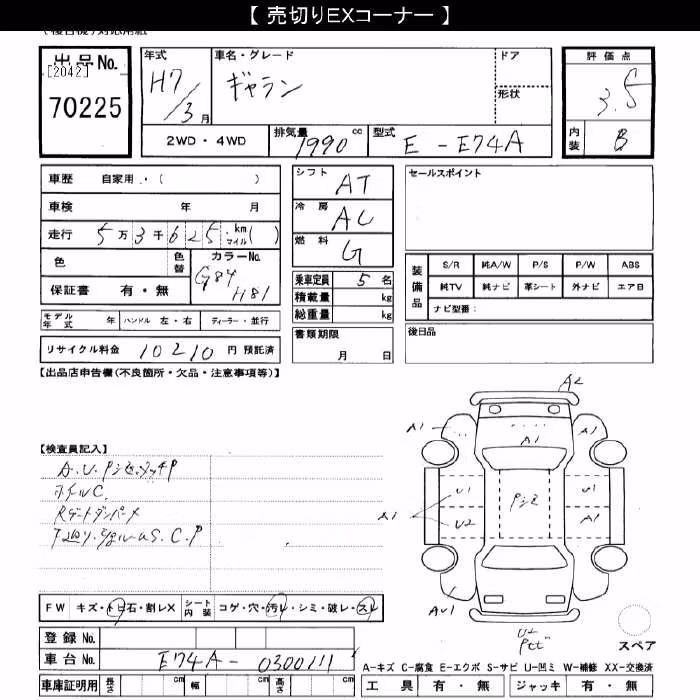 【 売切りEXコーナー 】
出品No.
[2042]
70225
年式
H7/3月
車名・グレード
ギャラン
ドア
形状
評価点
3.5
内装
B
2WD・4WD
排気量 1990 cc
型式 E-E74A
車歴 自家用・( )
車検 年 月
走行 5万3千625 km マイル( )
色 色替 カラーNo.
G84
H81
保証書 有・無
シフト AT
冷房 AC
燃料 G
乗車定員 5名
積載量 kg
総重量 kg
書類期限
月 日
セールスポイント
装備品
S/R 純A/W P/S P/W ABS
純TV 純ナビ 革シート 外ナビ エア日
ナビ型番:
後日品
モデル年式 年 ハンドル 左・右 ディーラー・並行
リサイクル料金 10210 円 預託済
【出品店申告欄(不良箇所・欠品・注意事項等)】
【検査員記入】
A.U.Pシミ.タッチP
ホイルC
RゲートダンパーメS.C.P
A2
A1
A1
A1
U1
U2
A1
Pシミ
U1
A1
AU1
U2
FW キズ・トビ石・割レX シート内装 コゲ・穴・汚レ・シミ・破レ・スレ
登録No.
車台No. E74A-0300111
車庫証明用 長さ cm 幅 cm 高さ cm
スペア
A-キズ C-腐食 E-エクボ S-サビ U-凹ミ W-補修 XX-交換済
工具 有・無 ジャッキ 有・無